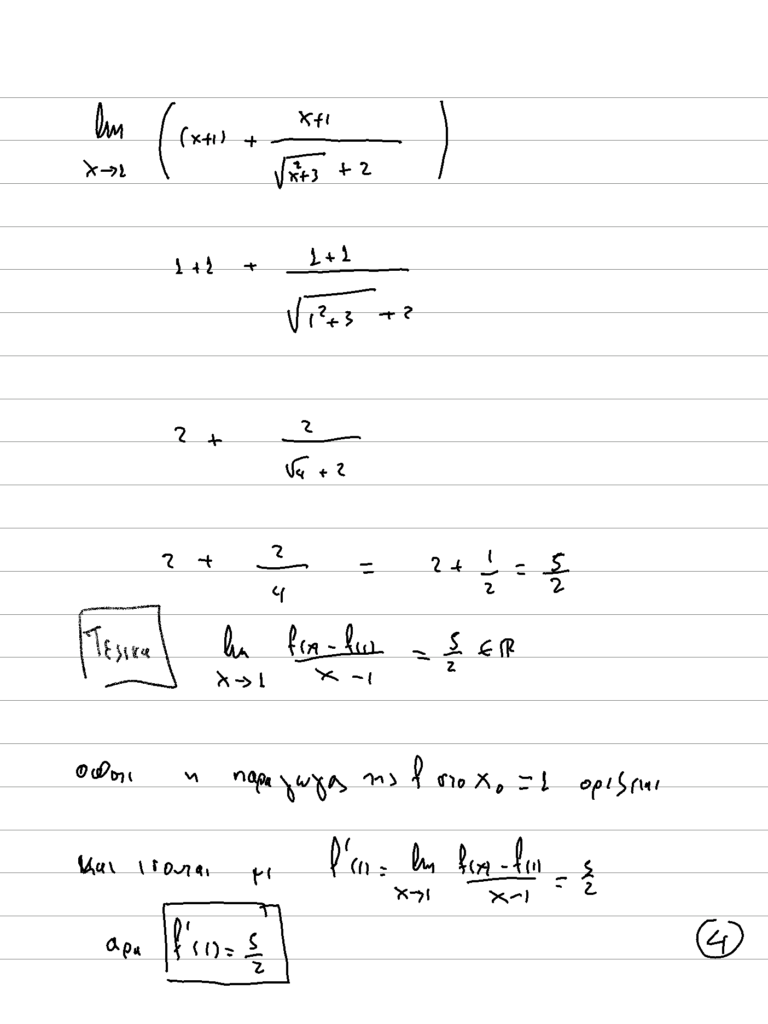 lim x→1 ( (x+1) + (x+1)/(√(x²+3) + 2) )
1+1 + (1+1)/(√(1²+3) + 2)
2 + 2/(√4 + 2)
2 + 2/4 = 2 + 1/2 = 5/2
Τελικα lim x→1 (f(x) - f(1))/(x - 1) = 5/2 ∈ ℝ
οποτε η παραγωγος της f στο x₀ = 1 οριζεται
και ισουται με f'(1) = lim x→1 (f(x) - f(1))/(x-1) = 5/2
αρα f'(1) = 5/2
4